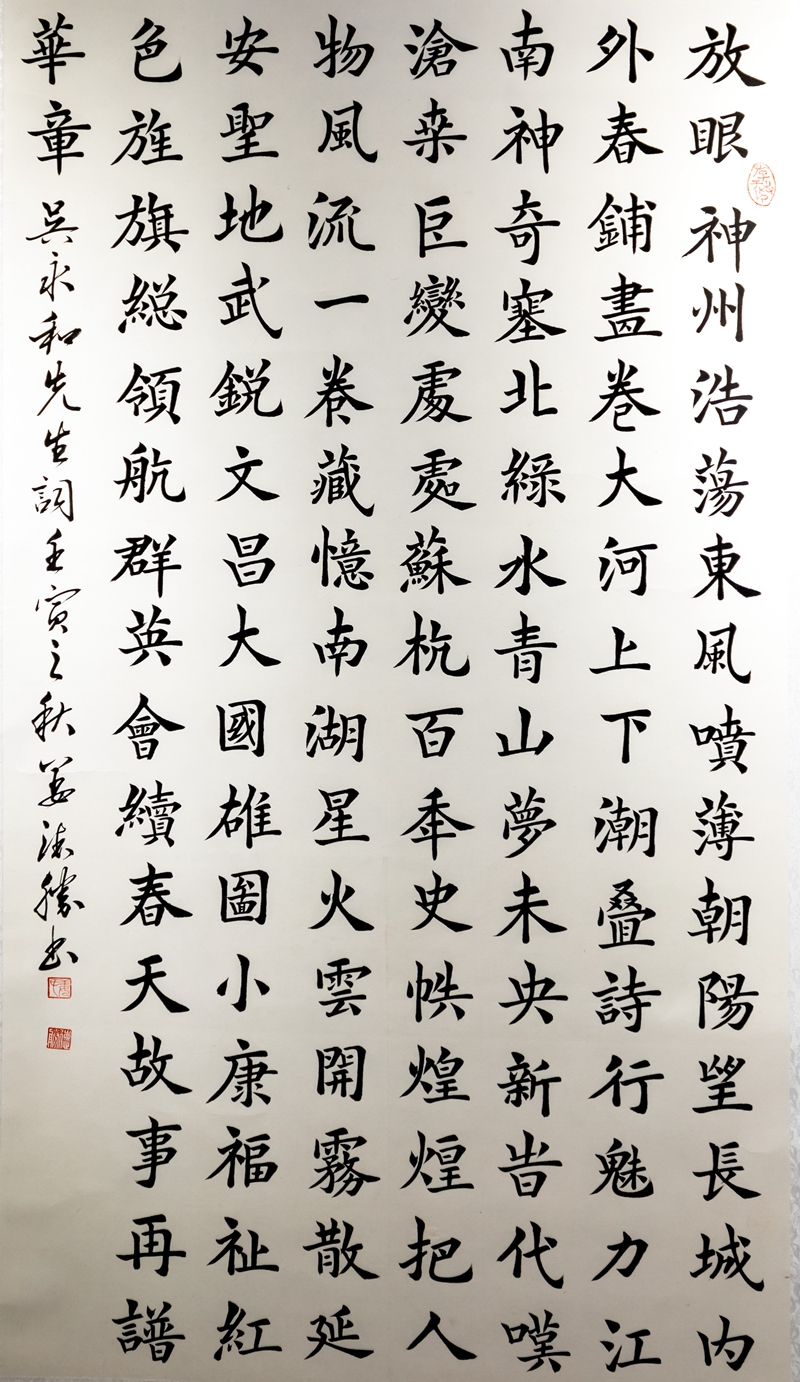 放眼神州浩蕩東風噴薄朝陽望長城内
外春鋪畫卷大河上下潮疊詩行魅力江
南神奇塞北綠水青山夢未央新旹代嘆
滄桒巨變處處蘇杭百秊史帙煌煌把人
物風流一卷藏憶南湖星火雲開霧散延
安聖地武銳文昌大國雄圖小康福祉紅
色旌旗総領航群英會續春天故事再譜
華章
吴永和先生詞壬寅之秋姜法勝书